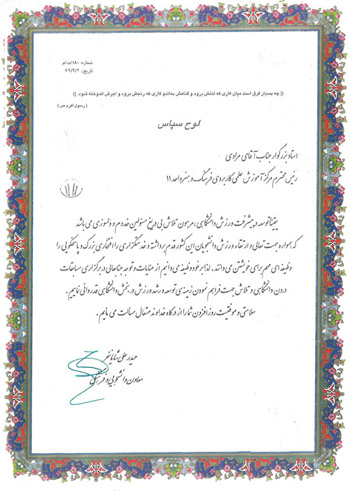 شماره: ۱۸۰/ت/دلو
تاریخ: ۸۹/۹/۲
(( چه بسیار فرق است میان کاری که لذتش برود و گناهش بماند و کاری که رنجش برود و اجرش اندوخته شود. ))
( رسول اکرم ص )
لوح سپاس
استاد بزرگوار جناب آقای مرادی
رئیس محترم مرکز آموزش علمی کاربردی فرهنگ و هنر واحد ۱۱
یقینا توسعه و پیشرفت ورزش دانشگاهی، مرهون تلاش بی دریغ مسئولین خدوم و دلسوزی می باشد
که همواره جهت تعالی و ارتقاء ورزش دانشجویان این کشور قدم برداشته و خدمتگزاری را افتخاری بزرگ و پاسخگویی را
وظیفه ای مهم برای خویشتن می دانند. لذا بر خود وظیفه می دانیم از عنایات و توجه جنابعالی در برگزاری مسابقات
درون دانشگاهی و تلاش جهت فراهم نمودن زمینه ی توسعه و رشد ورزش در بخش دانشگاهی قدردانی نماییم.
سلامتی و موفقیت روز افزون شما را از درگاه خداوند متعال مسالت می نمایم.
حیدر علی
معاون دانشجویی و فرهنگی